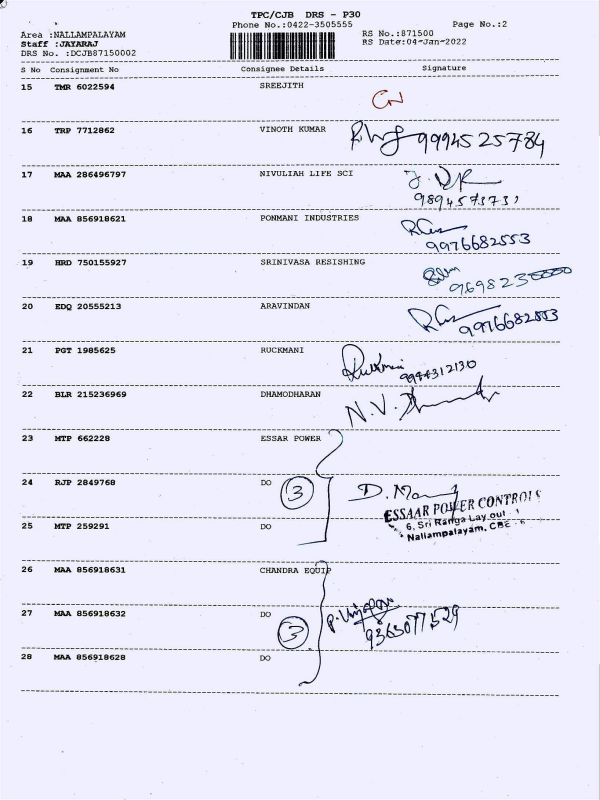 TPC/CJB DRS - P30
Phone No.:0422-3505555 Page No.:2
Area :NALLAMPALAYAM RS No.:871500
Staff :JAYARAJ RS Date:04-Jan-2022
DRS No. :DCJB87150002
S No Consignment No Consignee Details Signature
15 TMR 6022594 SREEJITH
16 TRP 7712862 VINOTH KUMAR 9994525784
17 MAA 286496797 NIVULIAH LIFE SCI
18 MAA 856918621 PONMANI INDUSTRIES
9976682553
19 HRD 750155927 SRINIVASA RESISHING
20 EDQ 20555213 ARAVINDAN
21 PGT 1985625 RUCKMANI Rukkmani
9994312130
22 BLR 215236969 DHAMODHARAN N.V.
23 MTP 662228 ESSAR POWER
24 RJP 2849768 DO 3 D.
ESSAAR POWER CONTROLS
6, Sri Ranga Lay out
25 MTP 259291 DO
Nallampalayam, CBE - 6
26 MAA 856918631 CHANDRA EQUIP
27 MAA 856918632 DO 3
9363077529
28 MAA 856918628 DO